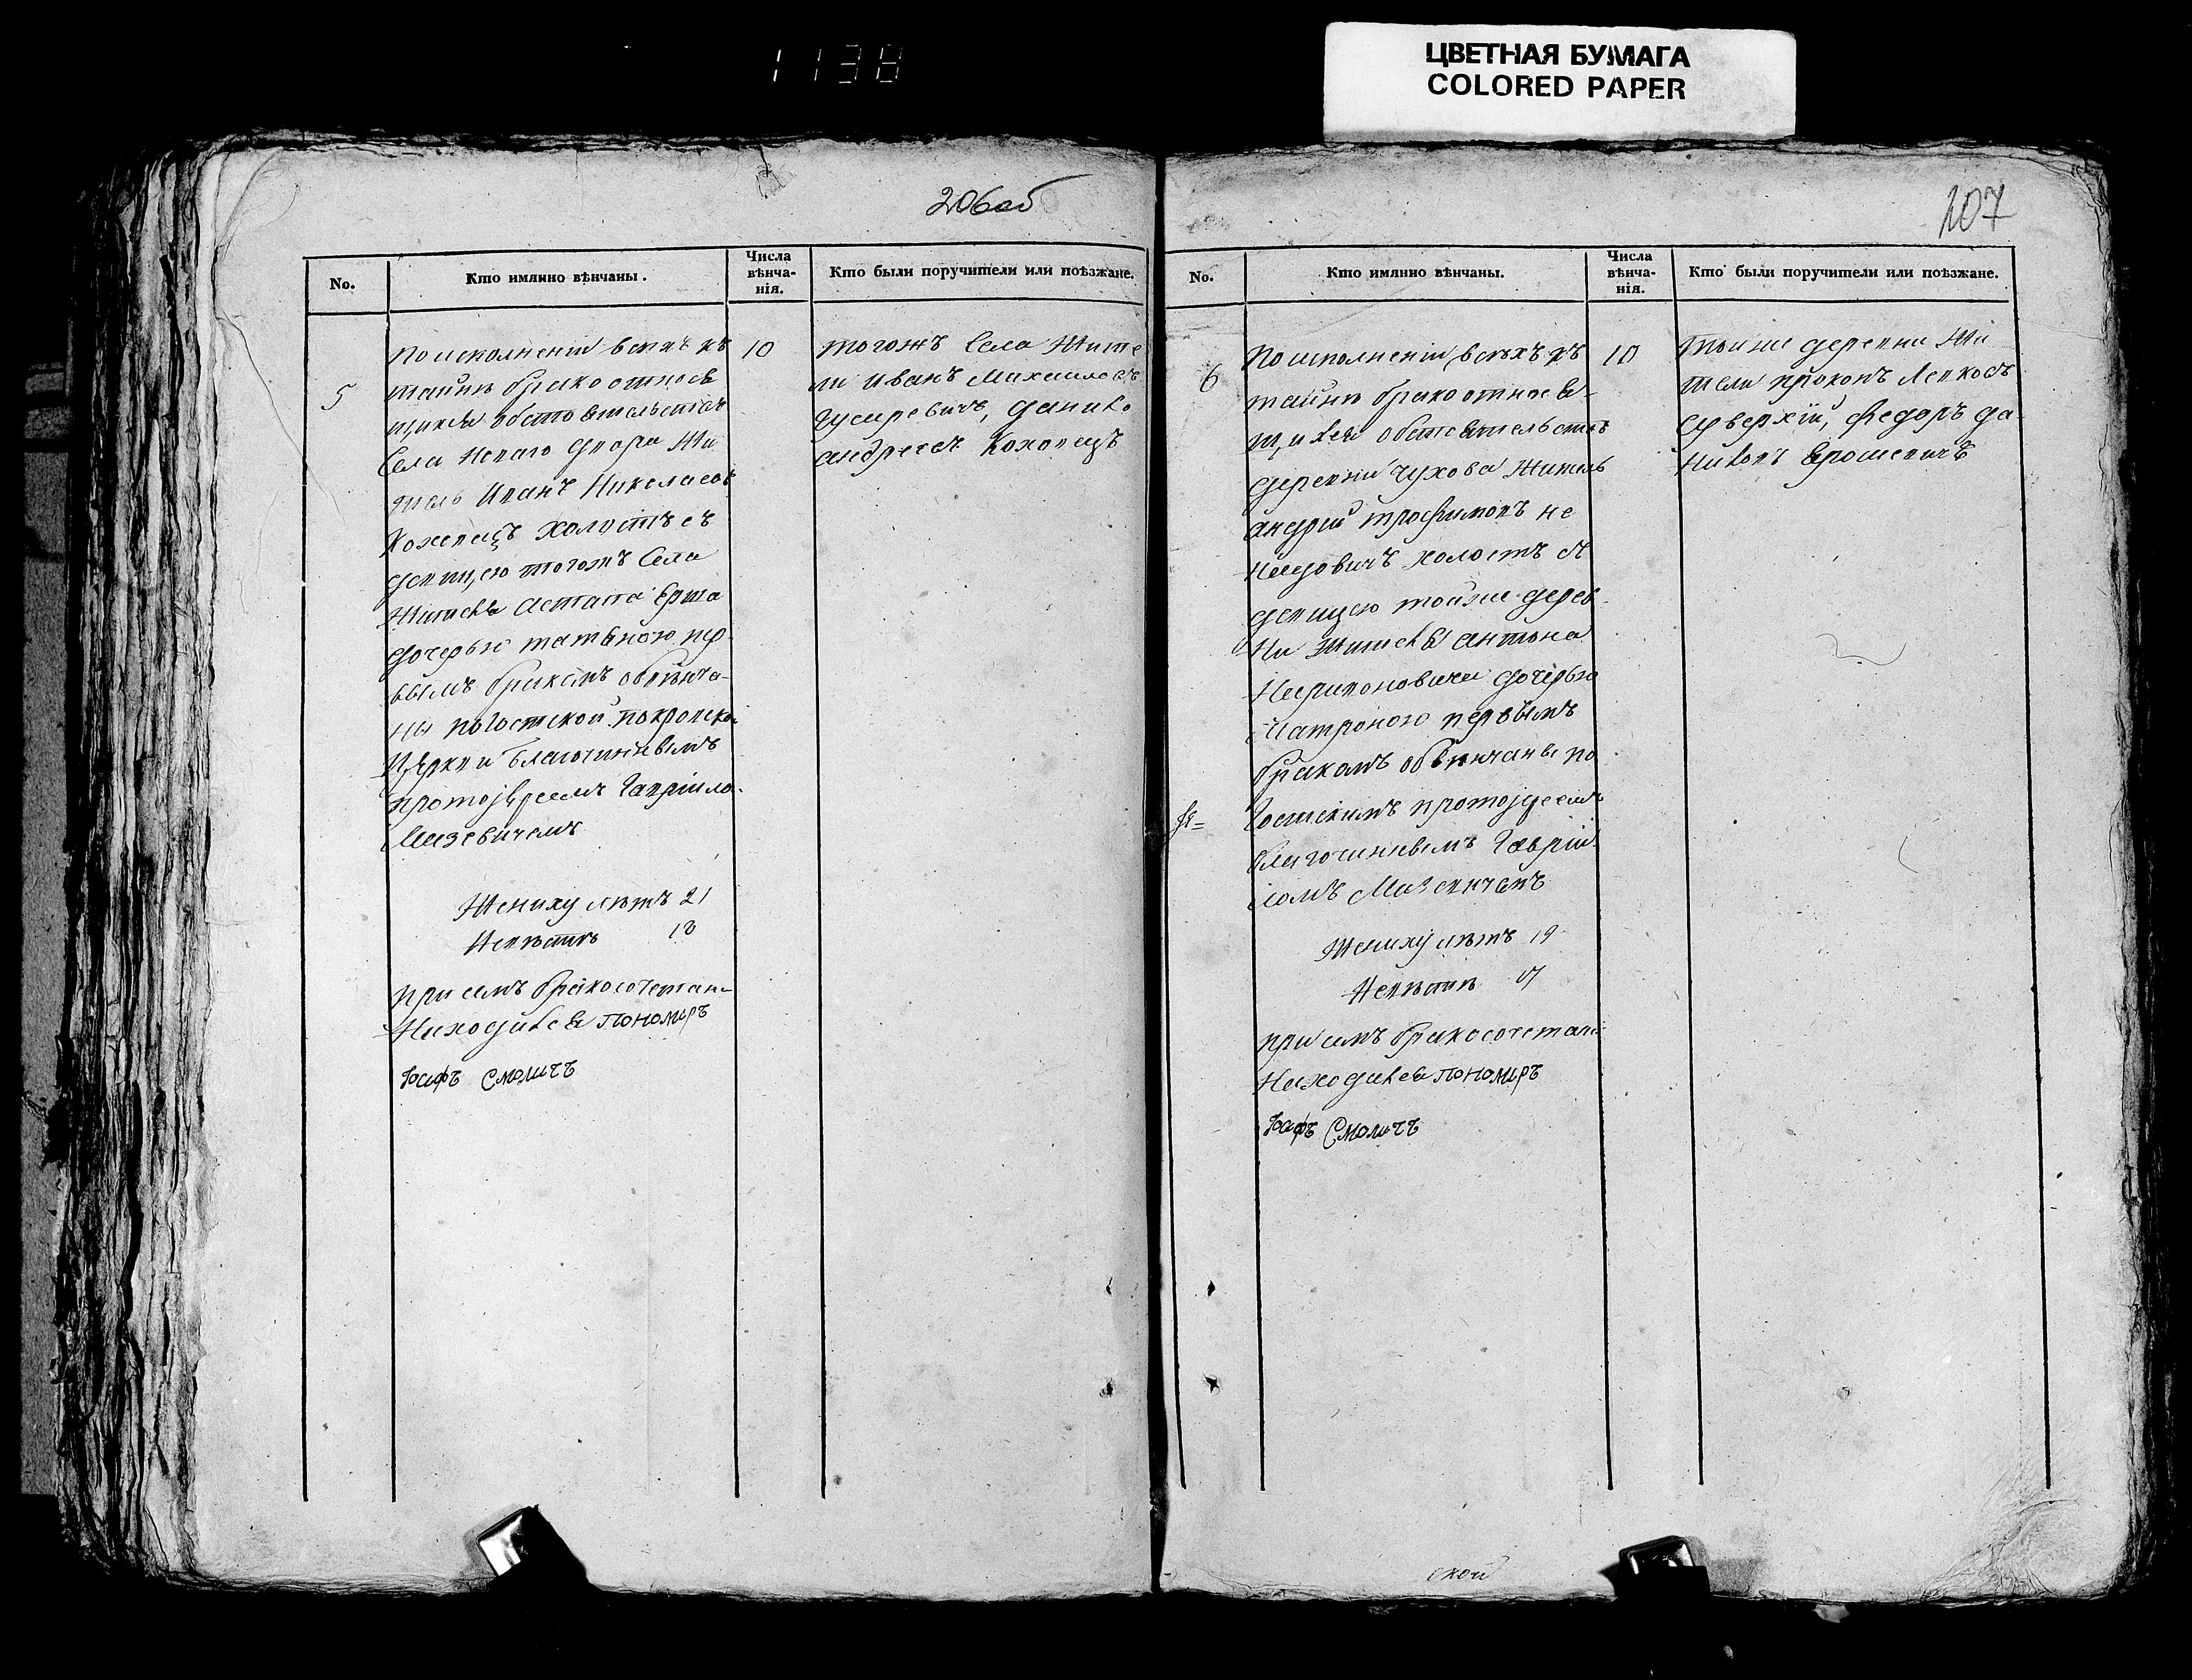 1138
ЦВЕТНАЯ БУМАГА
COLORED PAPER
206об
No.
Кто имянно вѣнчаны.
Числа
вѣнча-
нія.
Кто были поручители или поѣзжане.
5
По исполненіи всѣхъ къ
тайнѣ брака относя
щихся обстоятельствъ
Села Новаго Двора Жи
тель Иванъ Николаевъ
холостъ съ
девицею тогожъ Села
Жителя Астапа Ерша
дочерью татьяною пер
вымъ бракомъ обвѣнча-
ны погостской покровской
Церкви Благочиннымъ
протоіереемъ Гавріило.
Мизевичемъ
Жениху лѣтъ 21
Невѣстѣ 18
при семъ бракосочетан-
Находился пономаръ
Іосифъ Смоличъ
10
тогожъ Села Жите
ли Иванъ Михайловъ
Данило
андреевъ
207
No.
Кто имянно вѣнчаны.
Числа
вѣнча-
нія.
Кто были поручители или поѣзжане.
6
По исполненіи всѣхъ къ
тайнѣ брака относя-
щихся обстоятельствъ
деревни Чухова Житель
андрей трофимовъ не
холостъ съ
девицею тойже дерев-
ни Жителя антона
дочерью
Матроною первымъ
бракомъ обвѣнчаны по
гостскимъ протоіереемъ
благочиннымъ Гавріи
ломъ Мизевичемъ
Жениху лѣтъ 19
Невѣстѣ 17
при семъ бракосочетані
Находился пономаръ
Іосифъ Смоличъ
10
тойже деревни Жи
тели прокопъ
Федоръ да
скои